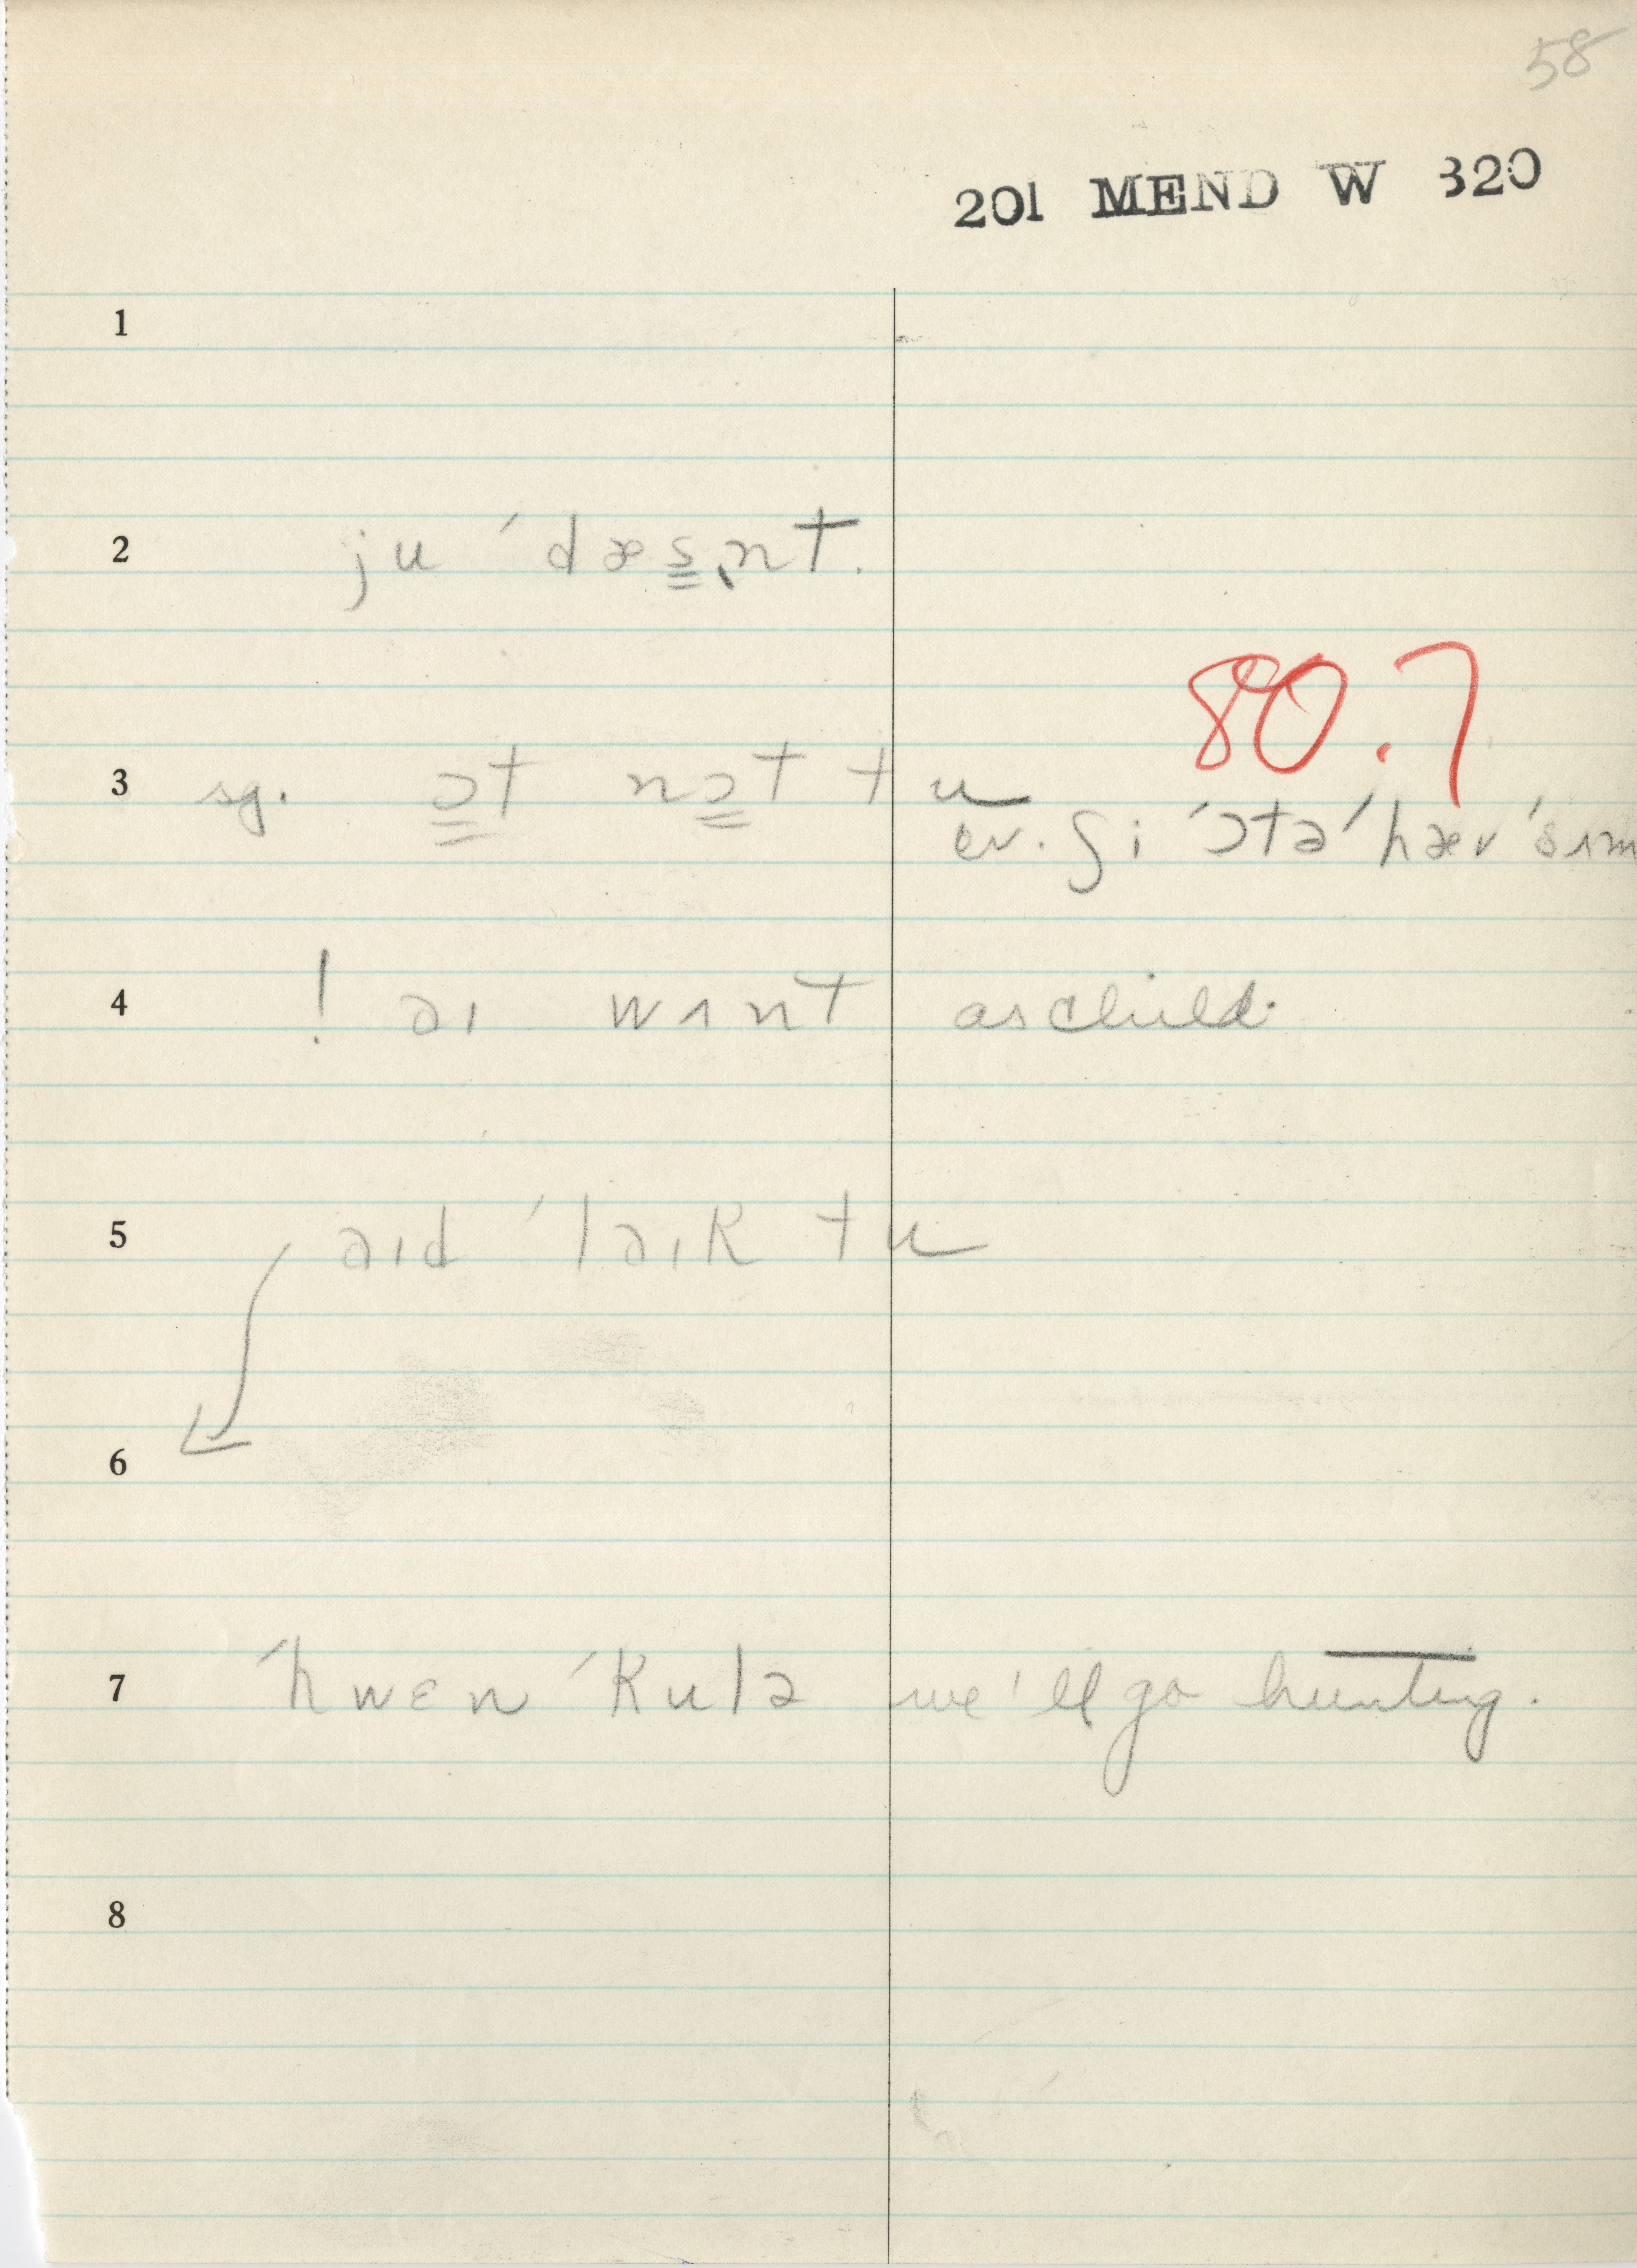 58
201 MEND W 320
1
2 ju ˈdæs̳ṇt.
3 sg. ɔ̳t nɔ̳t tu
80.7
cv. ʃi ˈɔtə ˈhæv ˈsʌm
4 ! aɪ wʌnt as child.
5 aɪd ˈlaɪk tu
6
7 ˈhwɛn ˈkulɚ we'll go hunting.
8